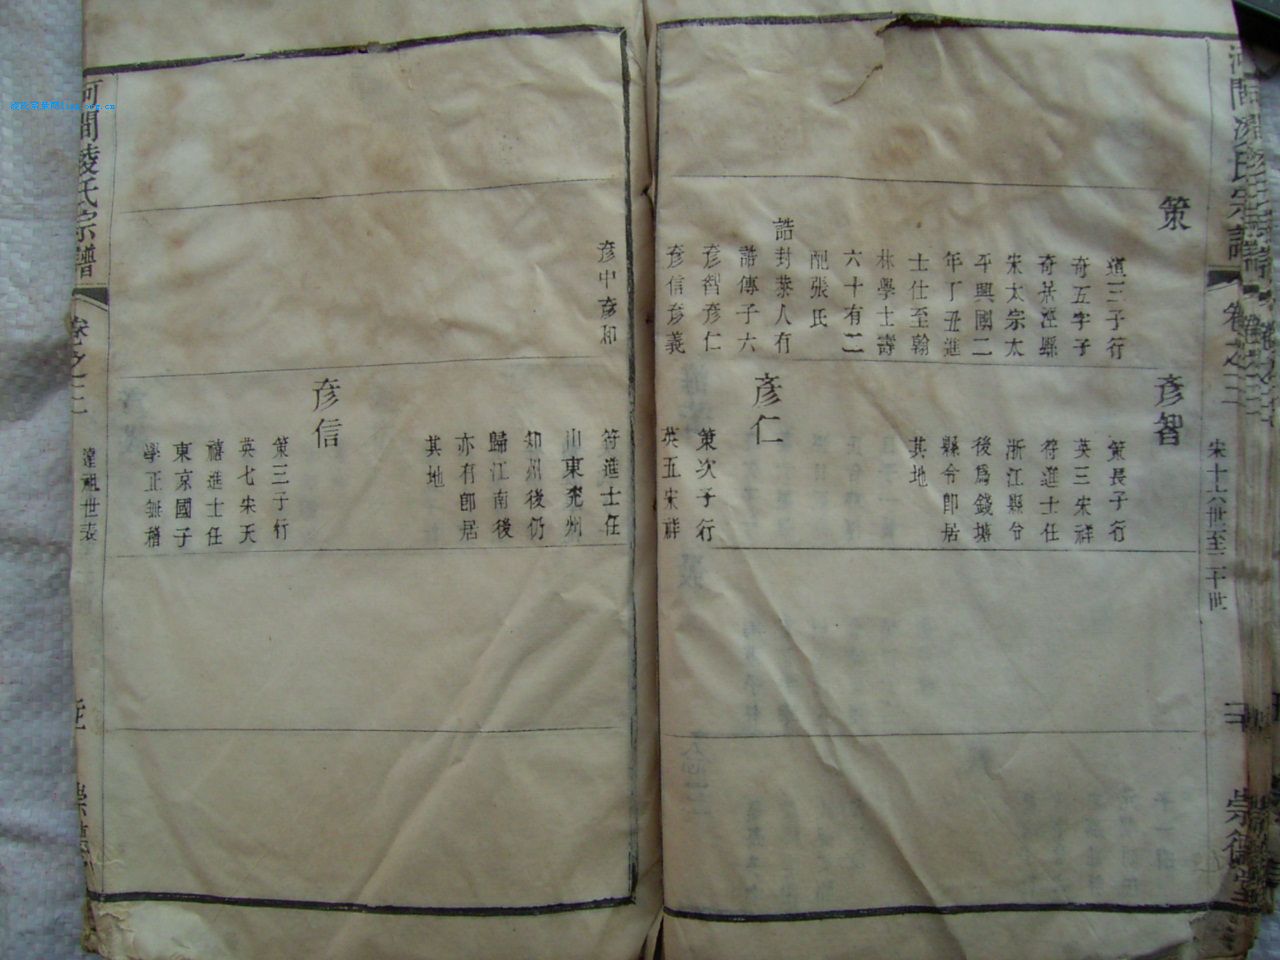 河間凌氏宗譜
卷之二
宋十六世至二十世
崇德堂
策
道三子行
奇五字子
奇居涇縣
宋太宗太
平興國二
年丁丑進
士仕至翰
林學士壽
六十有二
配張氏
誥封恭人有
誥傳子六
彥智彥仁
彥信彥義
彥智
策長子行
英三宋祥
符進士任
浙江縣令
後爲錢塘
縣令卽居
其地
彥仁
策次子行
英五宋祥
彥中彥和
符進士任
山東兖州
知州後仍
歸江南後
亦有卽居
其地
彥信
策三子行
英七宋天
禧進士任
東京國子
學正無稽
河間凌氏宗譜
卷之二
世表